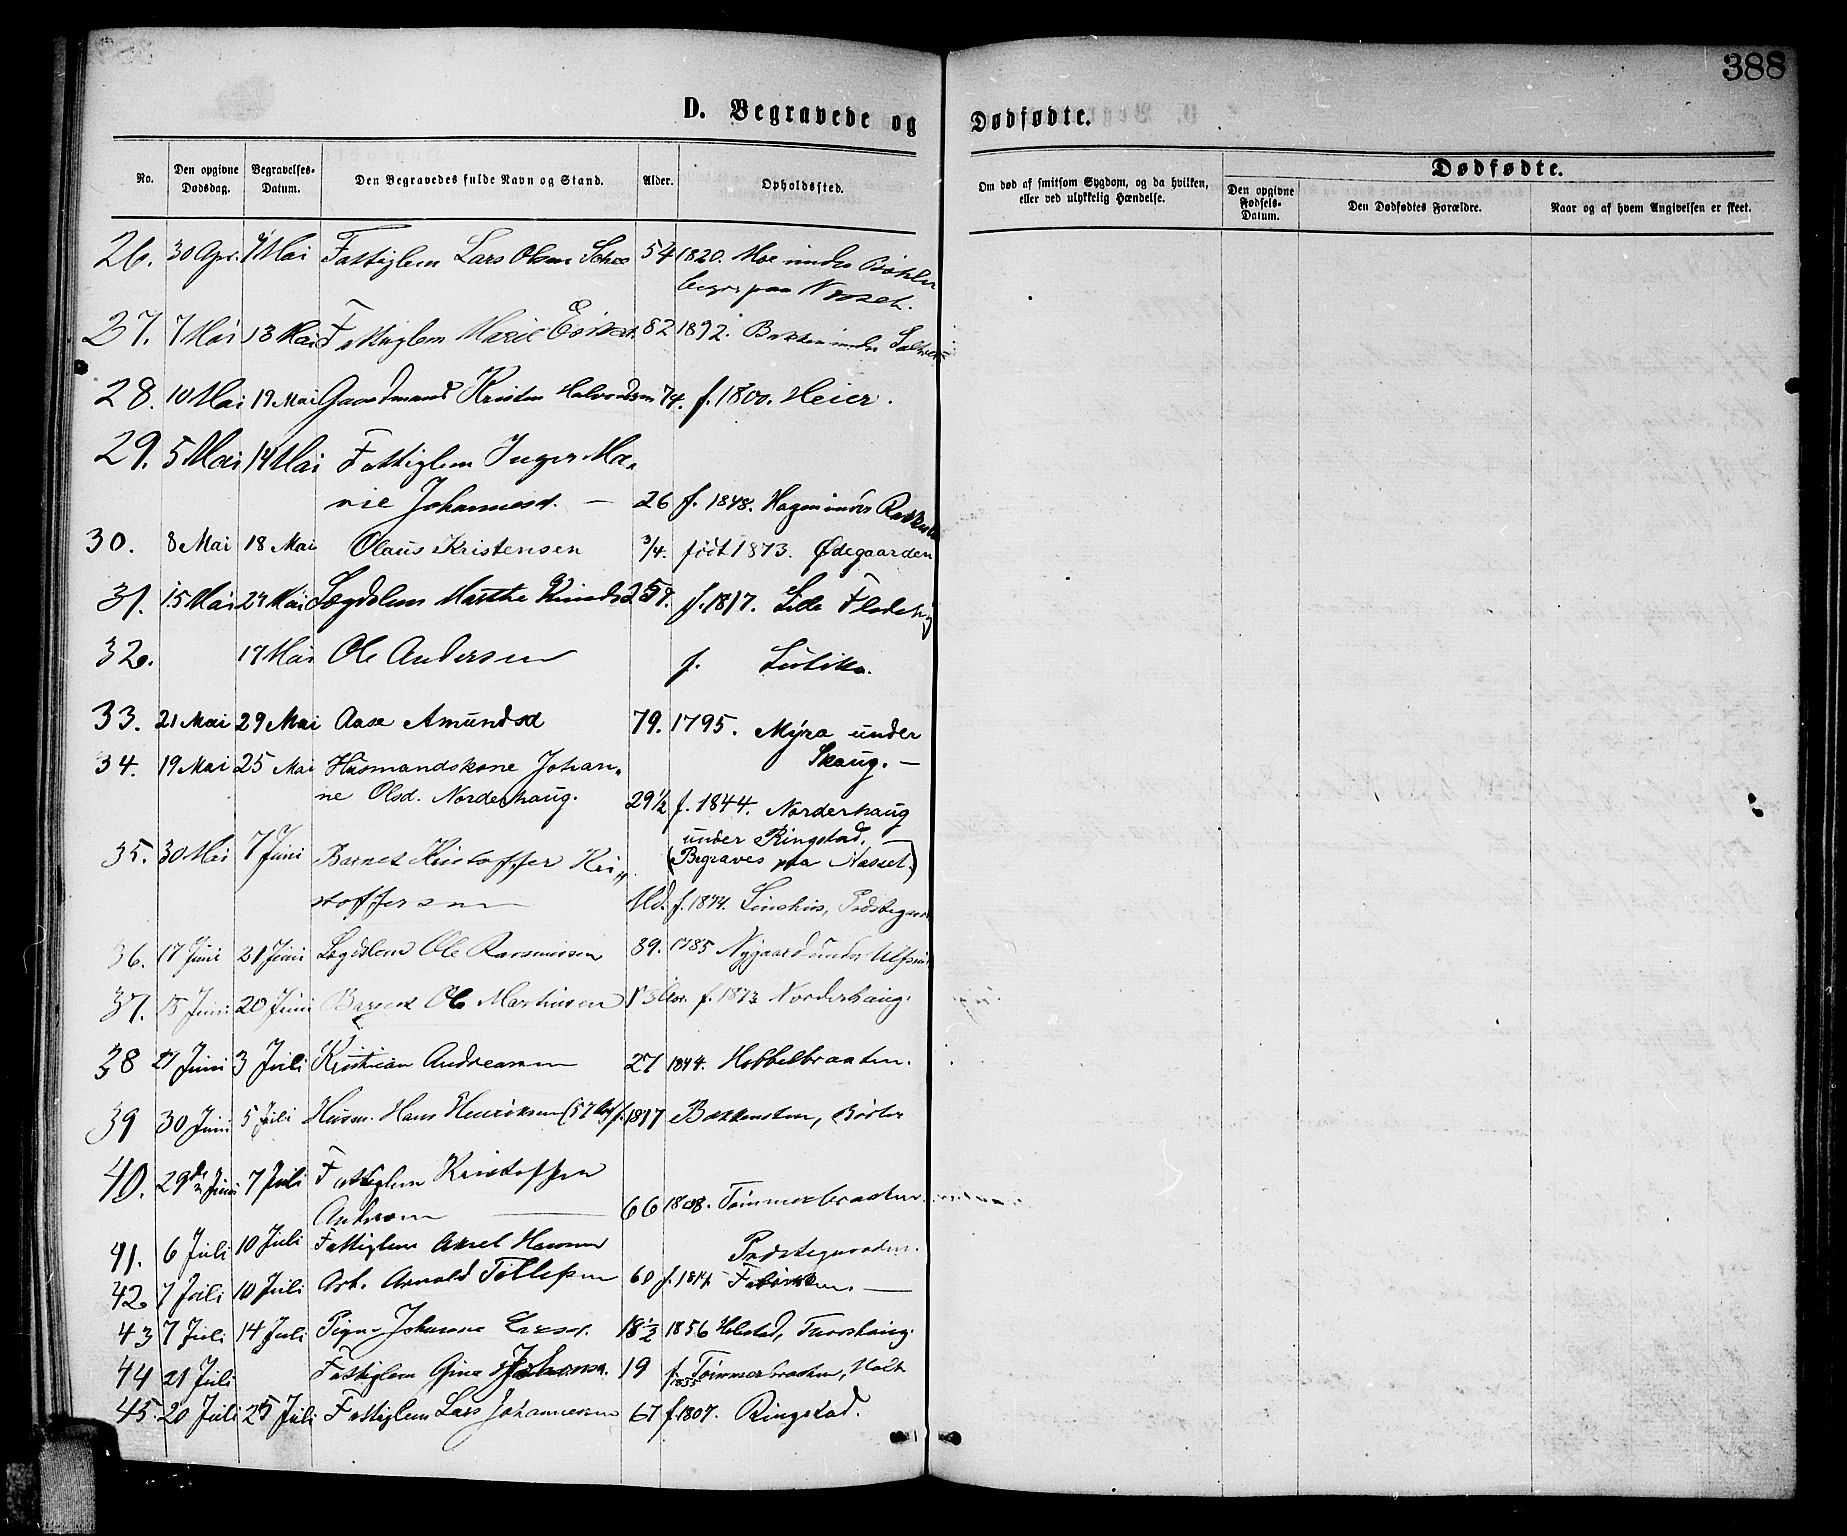 388
D. Begravede og Dødfødte.
No.
Den opgivne Dødsdag.
Begravelses-Datum.
Den Begravedes fulde Navn og Stand.
Alder.
Opholdssted.
Om død af smitsom Sygdom, og da hvilken, eller ved ulykkelig Hændelse.
Dødfødte.
Den opgivne Fødsels-Datum.
Den Dødfødtes Forældre.
Naar og af hvem Angivelsen er skeet.
26. 30 Apr. Mai Fattiglem Lars Olsen 54 1820. Moe under
begr. paa Nesset.
27. 7 Mai 13 Mai Fattiglem Marie 82 1892. Bakken under
28. 10 Mai 19 Mai Gaardmand Kristen Halvorsen 74. f. 1800. Heier.
29. 5 Mai 14 Mai Fattiglem Inger Ma-
rie Johannesd. — 26 f. 1848. Hagen under
30. 8 Mai 18 Mai Olaus Kristensen 3/4. født 1873. Ødegaarden
31. 15 Mai 24 Mai Lægdslem Marthe 57. f. 1817.
32. 17 Mai Ole Andersen f.
33. 21 Mai 29 Mai Aase Amundsd 79. 1795. Myra under
Skaug. —
34. 19 Mai 25 Mai Husmandskone Johan-
ne Olsd. Norderhaug. 29 1/2 f. 1844. Norderhaug
under Ringstad. —
(Begraves paa Nasset.)
35. 30 Mai 7 Juni Barnet Kristoffer Kri-
stoffersen f. 1874.
36. 17 Juni 21 Juni Lægdslem Ole Rasmussen 89. 1785 Nygaard under
37. 15 Juni 20 Juni Barnet Ole Martinsen f. 1873 Norderhaug.
38 21 Juni 3 Juli Kristian Andreassen 27 1844. Hobbelbraaten.
39 30 Juni 5 Juli Husm. Hans Henriksen (57 Aar) f. 1817 Bakkensten, Børter
40. 29de Juni 7 Juli Fattiglem Kristoffer
Andersen — 66 1808. Tømmerbraaten
41. 6 Juli 10 Juli Fattiglem Axel Hansen Prestegaarden.
42. 7 Juli 10 Juli Arb. Arnold Tollefsen 60 f. 1814 Fabrikken. —
43 7 Juli 14 Juli Pige Johanne Larsd. 18 1/2 1856 Holstad,
44 21 Juli Fattiglem Gina 19 f. 1855 Tømmerbraaten, Holt
45. 20 Juli 25 Juli Fattiglem Lars Johannessen 67 f. 1807. Ringstad.